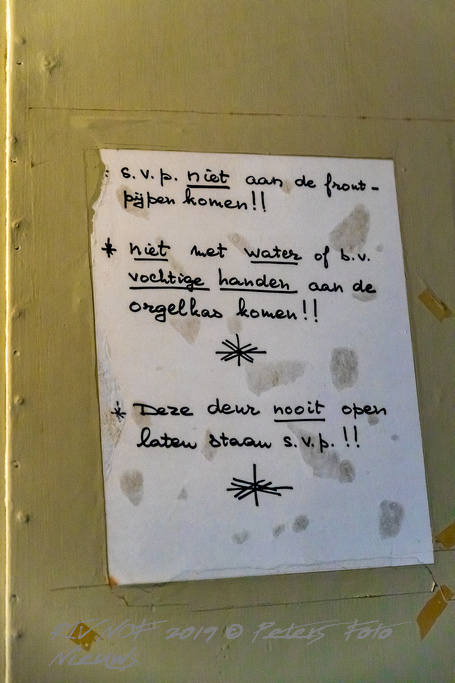 s.v.p. niet aan de front-
pijpen komen!!
* niet met water of b.v.
vochtige handen aan de
orgelkas komen!!
* Deze deur nooit open
laten staan s.v.p. !!
2019 © Peters Foto
Nieuws